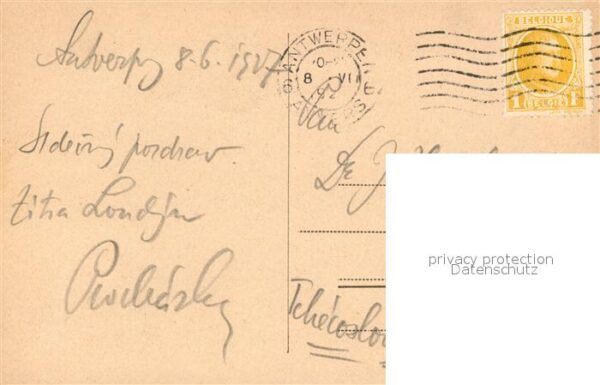 Antverpy 8.6.1927
Srdečný pozdrav.
Zítra Londýn
Procházka
ANTWERPEN
8 VI
ANVERS
BELGIQUE
1 Fr
BELGIË
Pan
Dr J.
Tchécoslo
privacy protection
Datenschutz